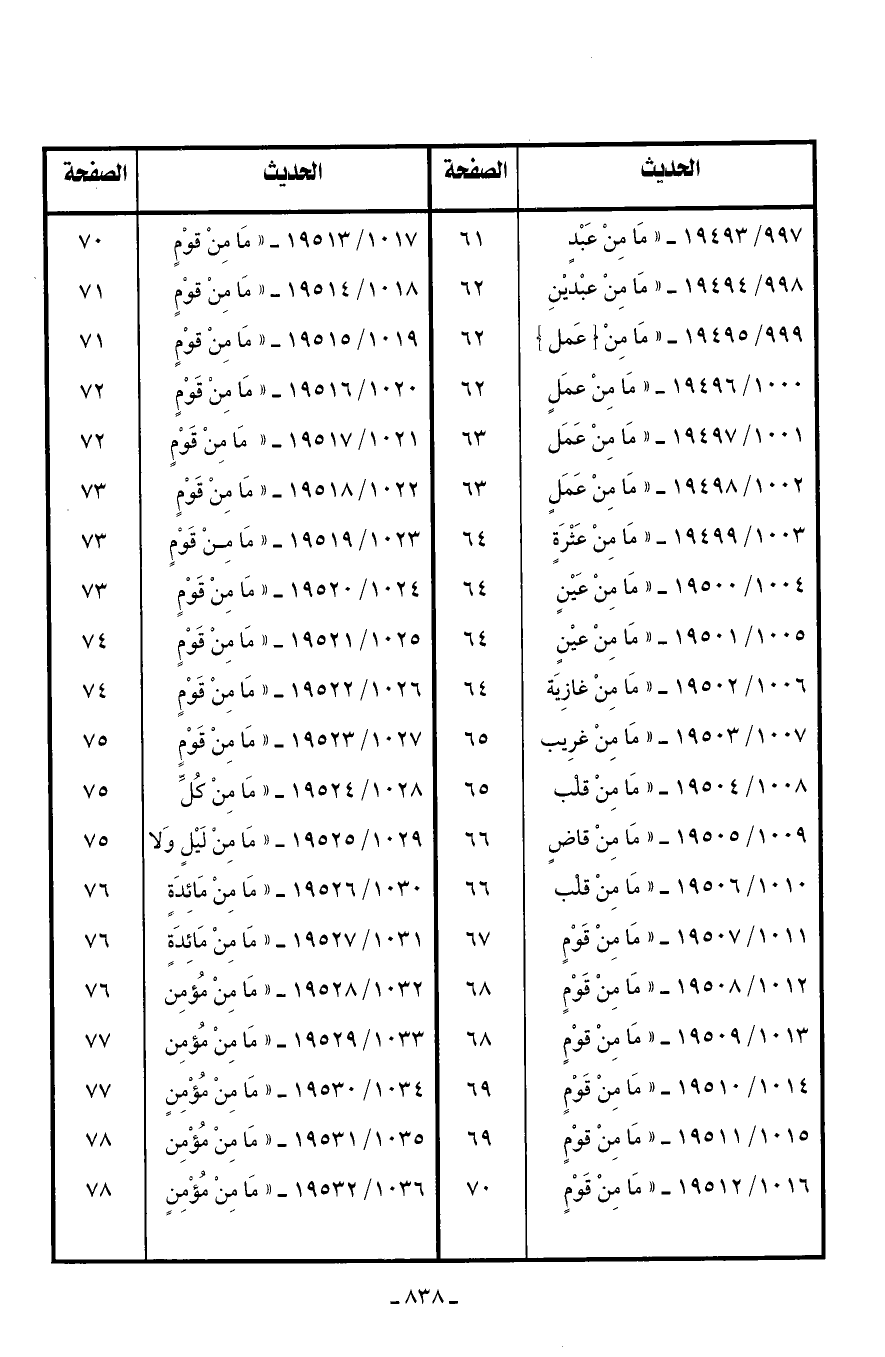 الحديث الصفحة الحديث الصفحة
٩٩٧/ ١٩٤٩٣ ـ « مَا مِنْ عَبْدٍ ٦١ ١٠١٧/ ١٩٥١٣ ـ « مَا مِنْ قوْمٍ ٧٠
٩٩٨/ ١٩٤٩٤ ـ « مَا مِنْ عبْديْنِ ٦٢ ١٠١٨/ ١٩٥١٤ ـ « مَا مِنْ قوْمٍ ٧١
٩٩٩/ ١٩٤٩٥ ـ « مَا مِنْ { عَمل } ٦٢ ١٠١٩/ ١٩٥١٥ ـ « مَا مِنْ قوْمٍ ٧١
١٠٠٠/ ١٩٤٩٦ ـ « مَا مِنْ عمَلٍ ٦٢ ١٠٢٠/ ١٩٥١٦ ـ « مَا مِنْ قَوْمٍ ٧٢
١٠٠١/ ١٩٤٩٧ ـ « مَا مِنْ عَمَل ٦٣ ١٠٢١/ ١٩٥١٧ ـ « مَا مِنْ قَوْمٍ ٧٢
١٠٠٢/ ١٩٤٩٨ ـ « مَا مِنْ عَمَلٍ ٦٣ ١٠٢٢/ ١٩٥١٨ ـ « مَا مِنْ قَوْمٍ ٧٣
١٠٠٣/ ١٩٤٩٩ ـ « مَا مِنْ عَثْرَةٍ ٦٤ ١٠٢٣/ ١٩٥١٩ ـ « مَا مِـنْ قَوْمٍ ٧٣
١٠٠٤/ ١٩٥٠٠ ـ « مَا مِنْ عَيْنٍ ٦٤ ١٠٢٤/ ١٩٥٢٠ ـ « مَا مِنْ قَوْمٍ ٧٣
١٠٠٥/ ١٩٥٠١ ـ « مَا مِنْ عيْنٍ ٦٤ ١٠٢٥/ ١٩٥٢١ ـ « مَا مِنْ قَوْمٍ ٧٤
١٠٠٦/ ١٩٥٠٢ ـ « مَا مِنْ غازِيَة ٦٤ ١٠٢٦/ ١٩٥٢٢ ـ « مَا مِنْ قَوْمٍ ٧٤
١٠٠٧/ ١٩٥٠٣ ـ « مَا مِنْ غرِيب ٦٥ ١٠٢٧/ ١٩٥٢٣ ـ « مَا مِنْ قَوْمٍ ٧٥
١٠٠٨/ ١٩٥٠٤ ـ « مَا مِنْ قلْب ٦٥ ١٠٢٨/ ١٩٥٢٤ ـ « مَا مِنْ كُلِّ ٧٥
١٠٠٩/ ١٩٥٠٥ ـ « مَا مِنْ قاضٍ ٦٦ ١٠٢٩/ ١٩٥٢٥ ـ « مَا مِنْ لَيْلٍ وَلا ٧٥
١٠١٠/ ١٩٥٠٦ ـ « مَا مِنْ قلْب ٦٦ ١٠٣٠/ ١٩٥٢٦ ـ « مَا مِنْ مَائِدَةٍ ٧٦
١٠١١/ ١٩٥٠٧ ـ « مَا مِنْ قَوْمٍ ٦٧ ١٠٣١/ ١٩٥٢٧ ـ « مَا مِنْ مَائِدَةٍ ٧٦
١٠١٢/ ١٩٥٠٨ ـ « مَا مِنْ قَوْمٍ ٦٨ ١٠٣٢/ ١٩٥٢٨ ـ « مَا مِنْ مُؤمِن ٧٦
١٠١٣/ ١٩٥٠٩ ـ « مَا مِنْ قوْمٍ ٦٨ ١٠٣٣/ ١٩٥٢٩ ـ « مَا مِنْ مُؤمِن ٧٧
١٠١٤/ ١٩٥١٠ ـ « مَا مِنْ قَوْمٍ ٦٩ ١٠٣٤/ ١٩٥٣٠ ـ « مَا مِنْ مُؤْمِنٍ ٧٧
١٠١٥/ ١٩٥١١ ـ « مَا مِنْ قوْمٍ ٦٩ ١٠٣٥/ ١٩٥٣١ ـ « مَا مِنْ مُؤْمِن ٧٨
١٠١٦/ ١٩٥١٢ ـ « مَا مِنْ قَوْمٍ ٧٠ ١٠٣٦/ ١٩٥٣٢ ـ « مَا مِنْ مُؤْمِنٍ ٧٨
ـ ٨٣٨ ـ